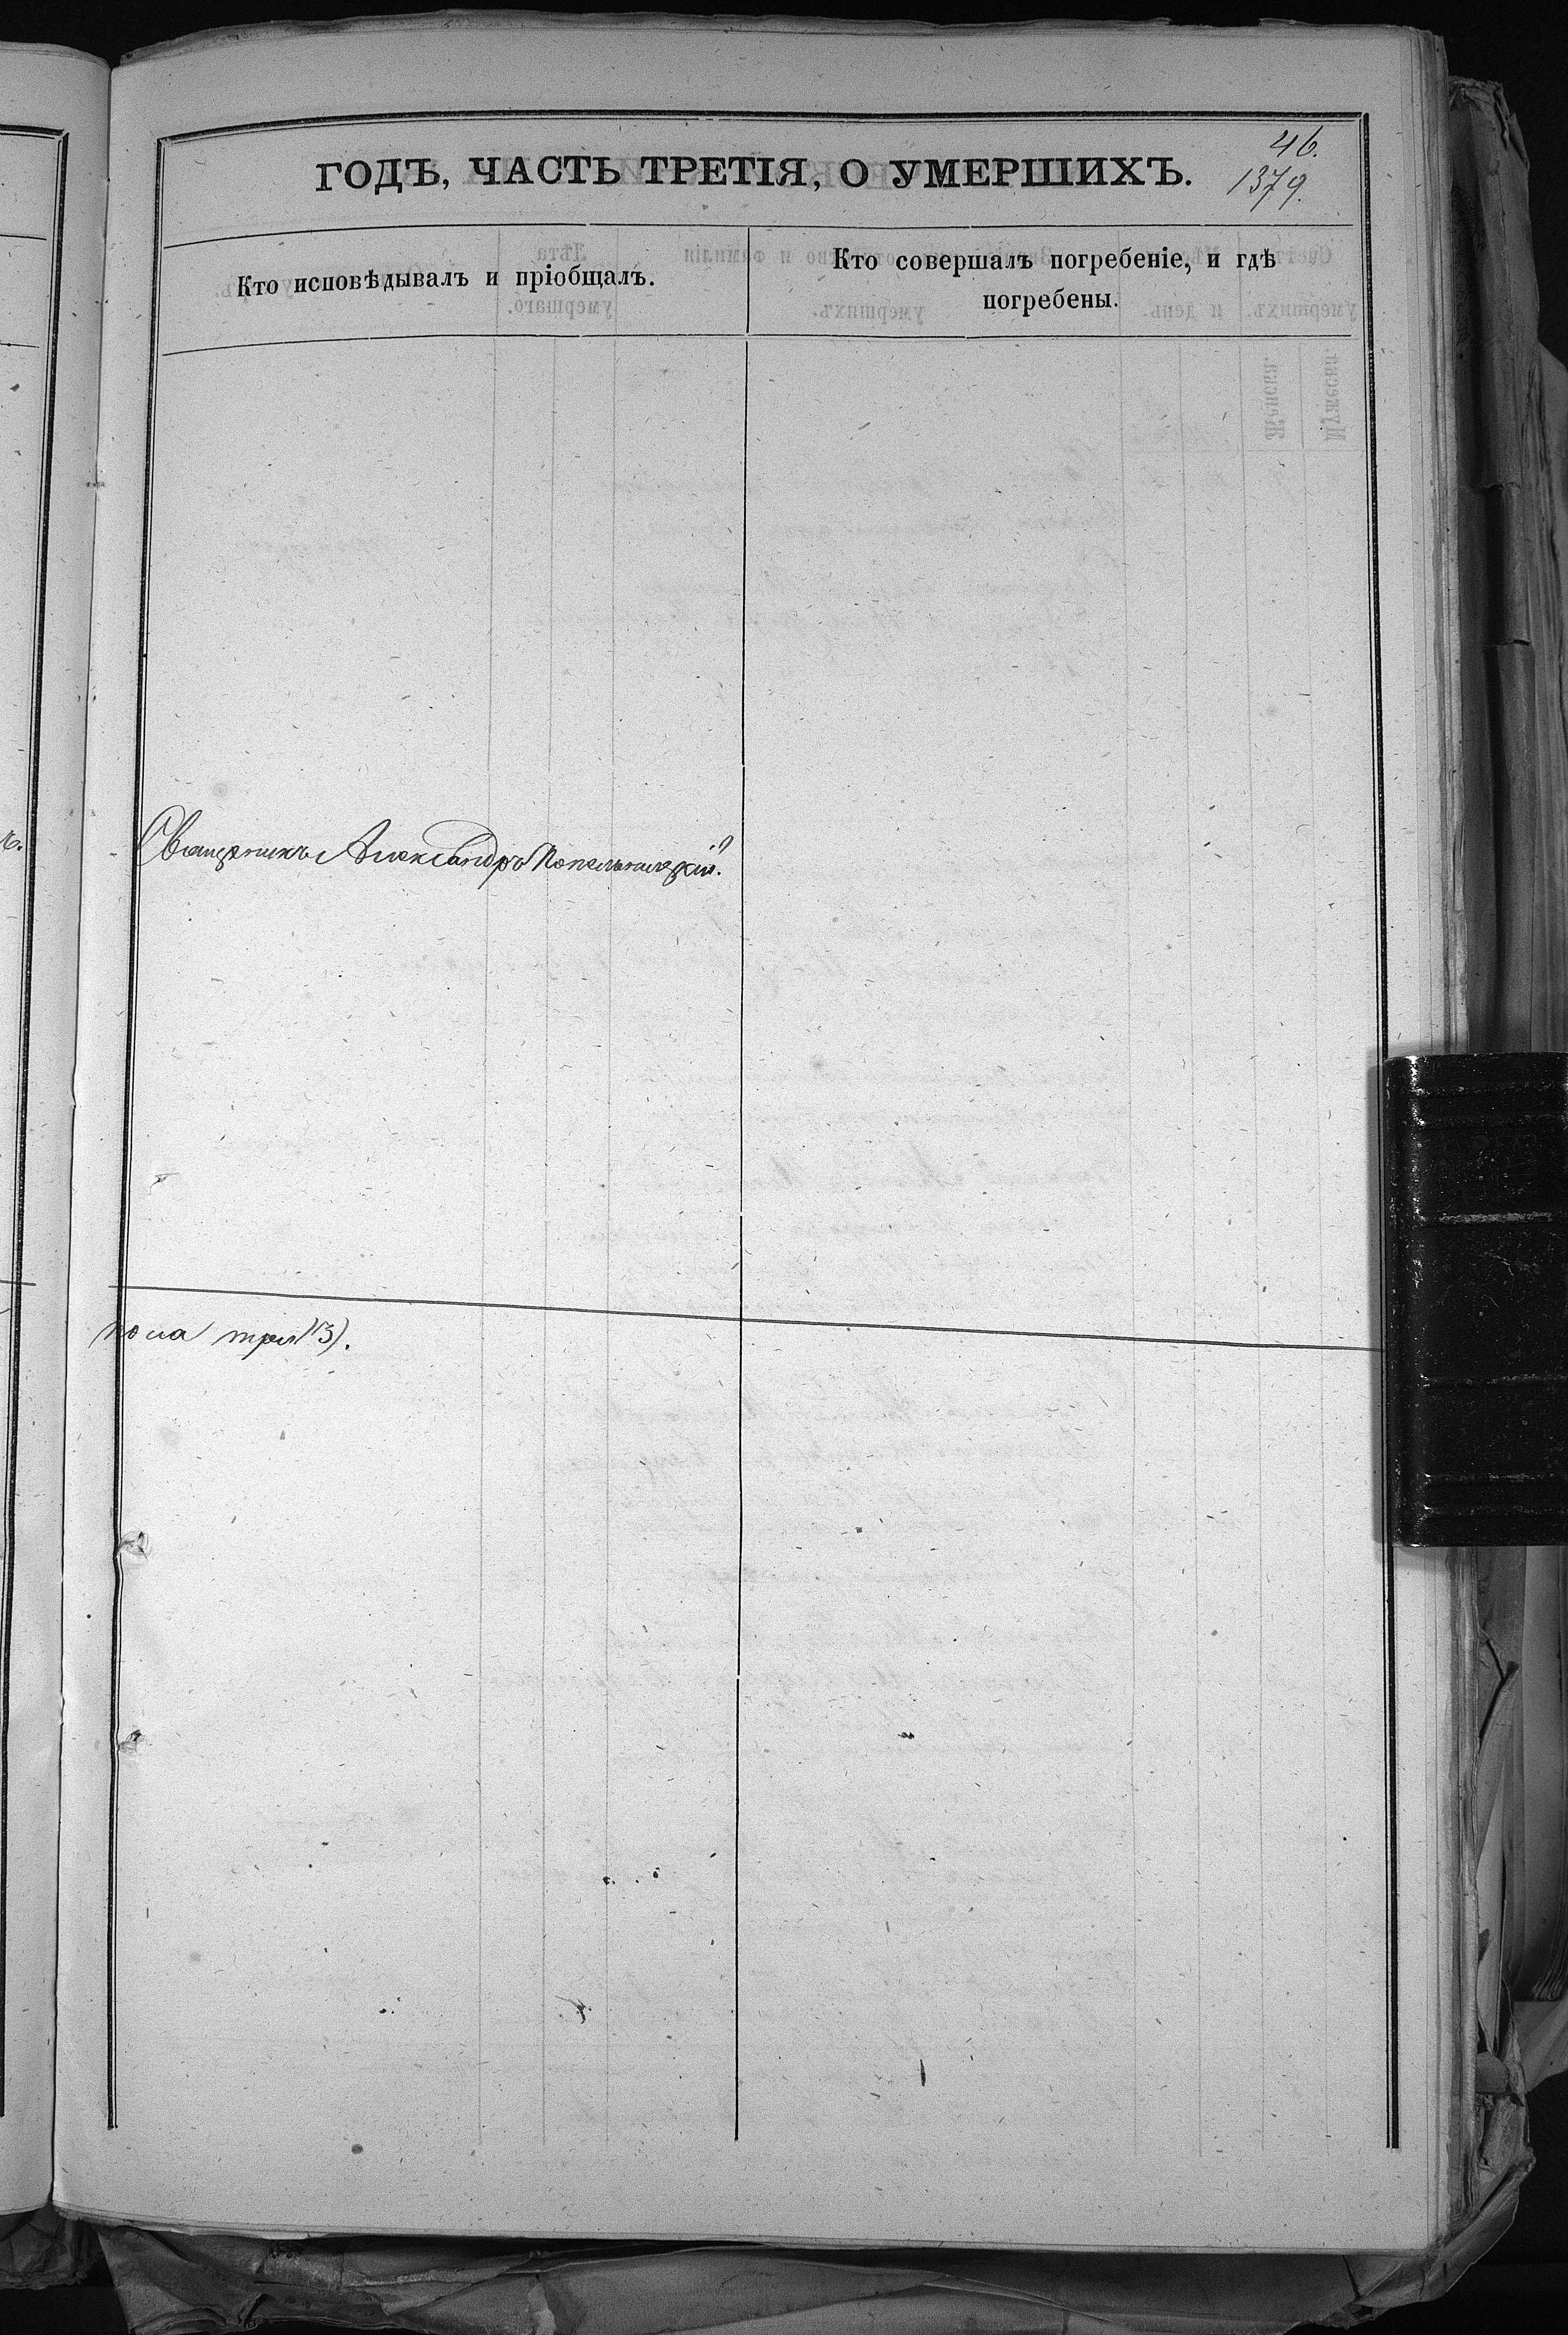 46.
ГОДЪ, ЧАСТЬ ТРЕТІЯ, О УМЕРШИХЪ.
1379.
Кто исповѣдывалъ и пріобщалъ.
Кто совершалъ погребеніе, и гдѣ
погребены.
Священникъ Александръ
пола три (3).